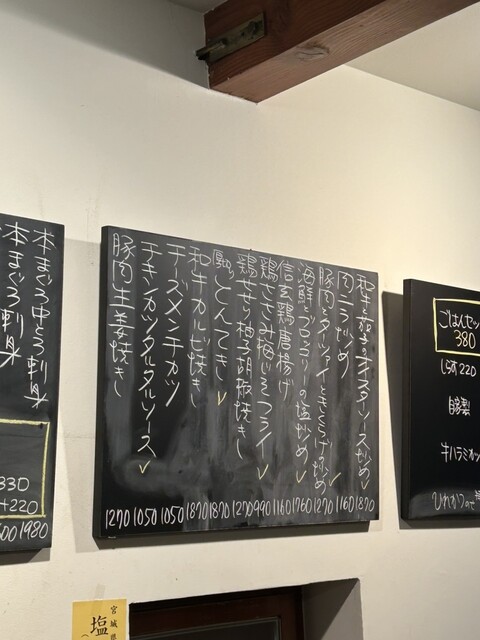 ごはんセッ
380
しらす 220
自家製
牛ハラミ
和牛と茄子のオイスターソース炒め 1870
肉ニラ炒め 1160
豚肉とターツァイときくらげ炒め 1270
海鮮とブロッコリーの塩炒め 1760
信玄鶏唐揚げ 1160
鶏ささみ梅しそフライ 990
鶏せせり柚子胡椒焼き 1270
厚切りとんてき 1870
和牛カルビ焼き 1870
チーズメンチカツ 1050
チキンカツタルタルソース 1050
豚肉生姜焼き 1270
本まぐろ中とろ刺身 1980
本まぐろ刺身
330
+220
宮城県
塩